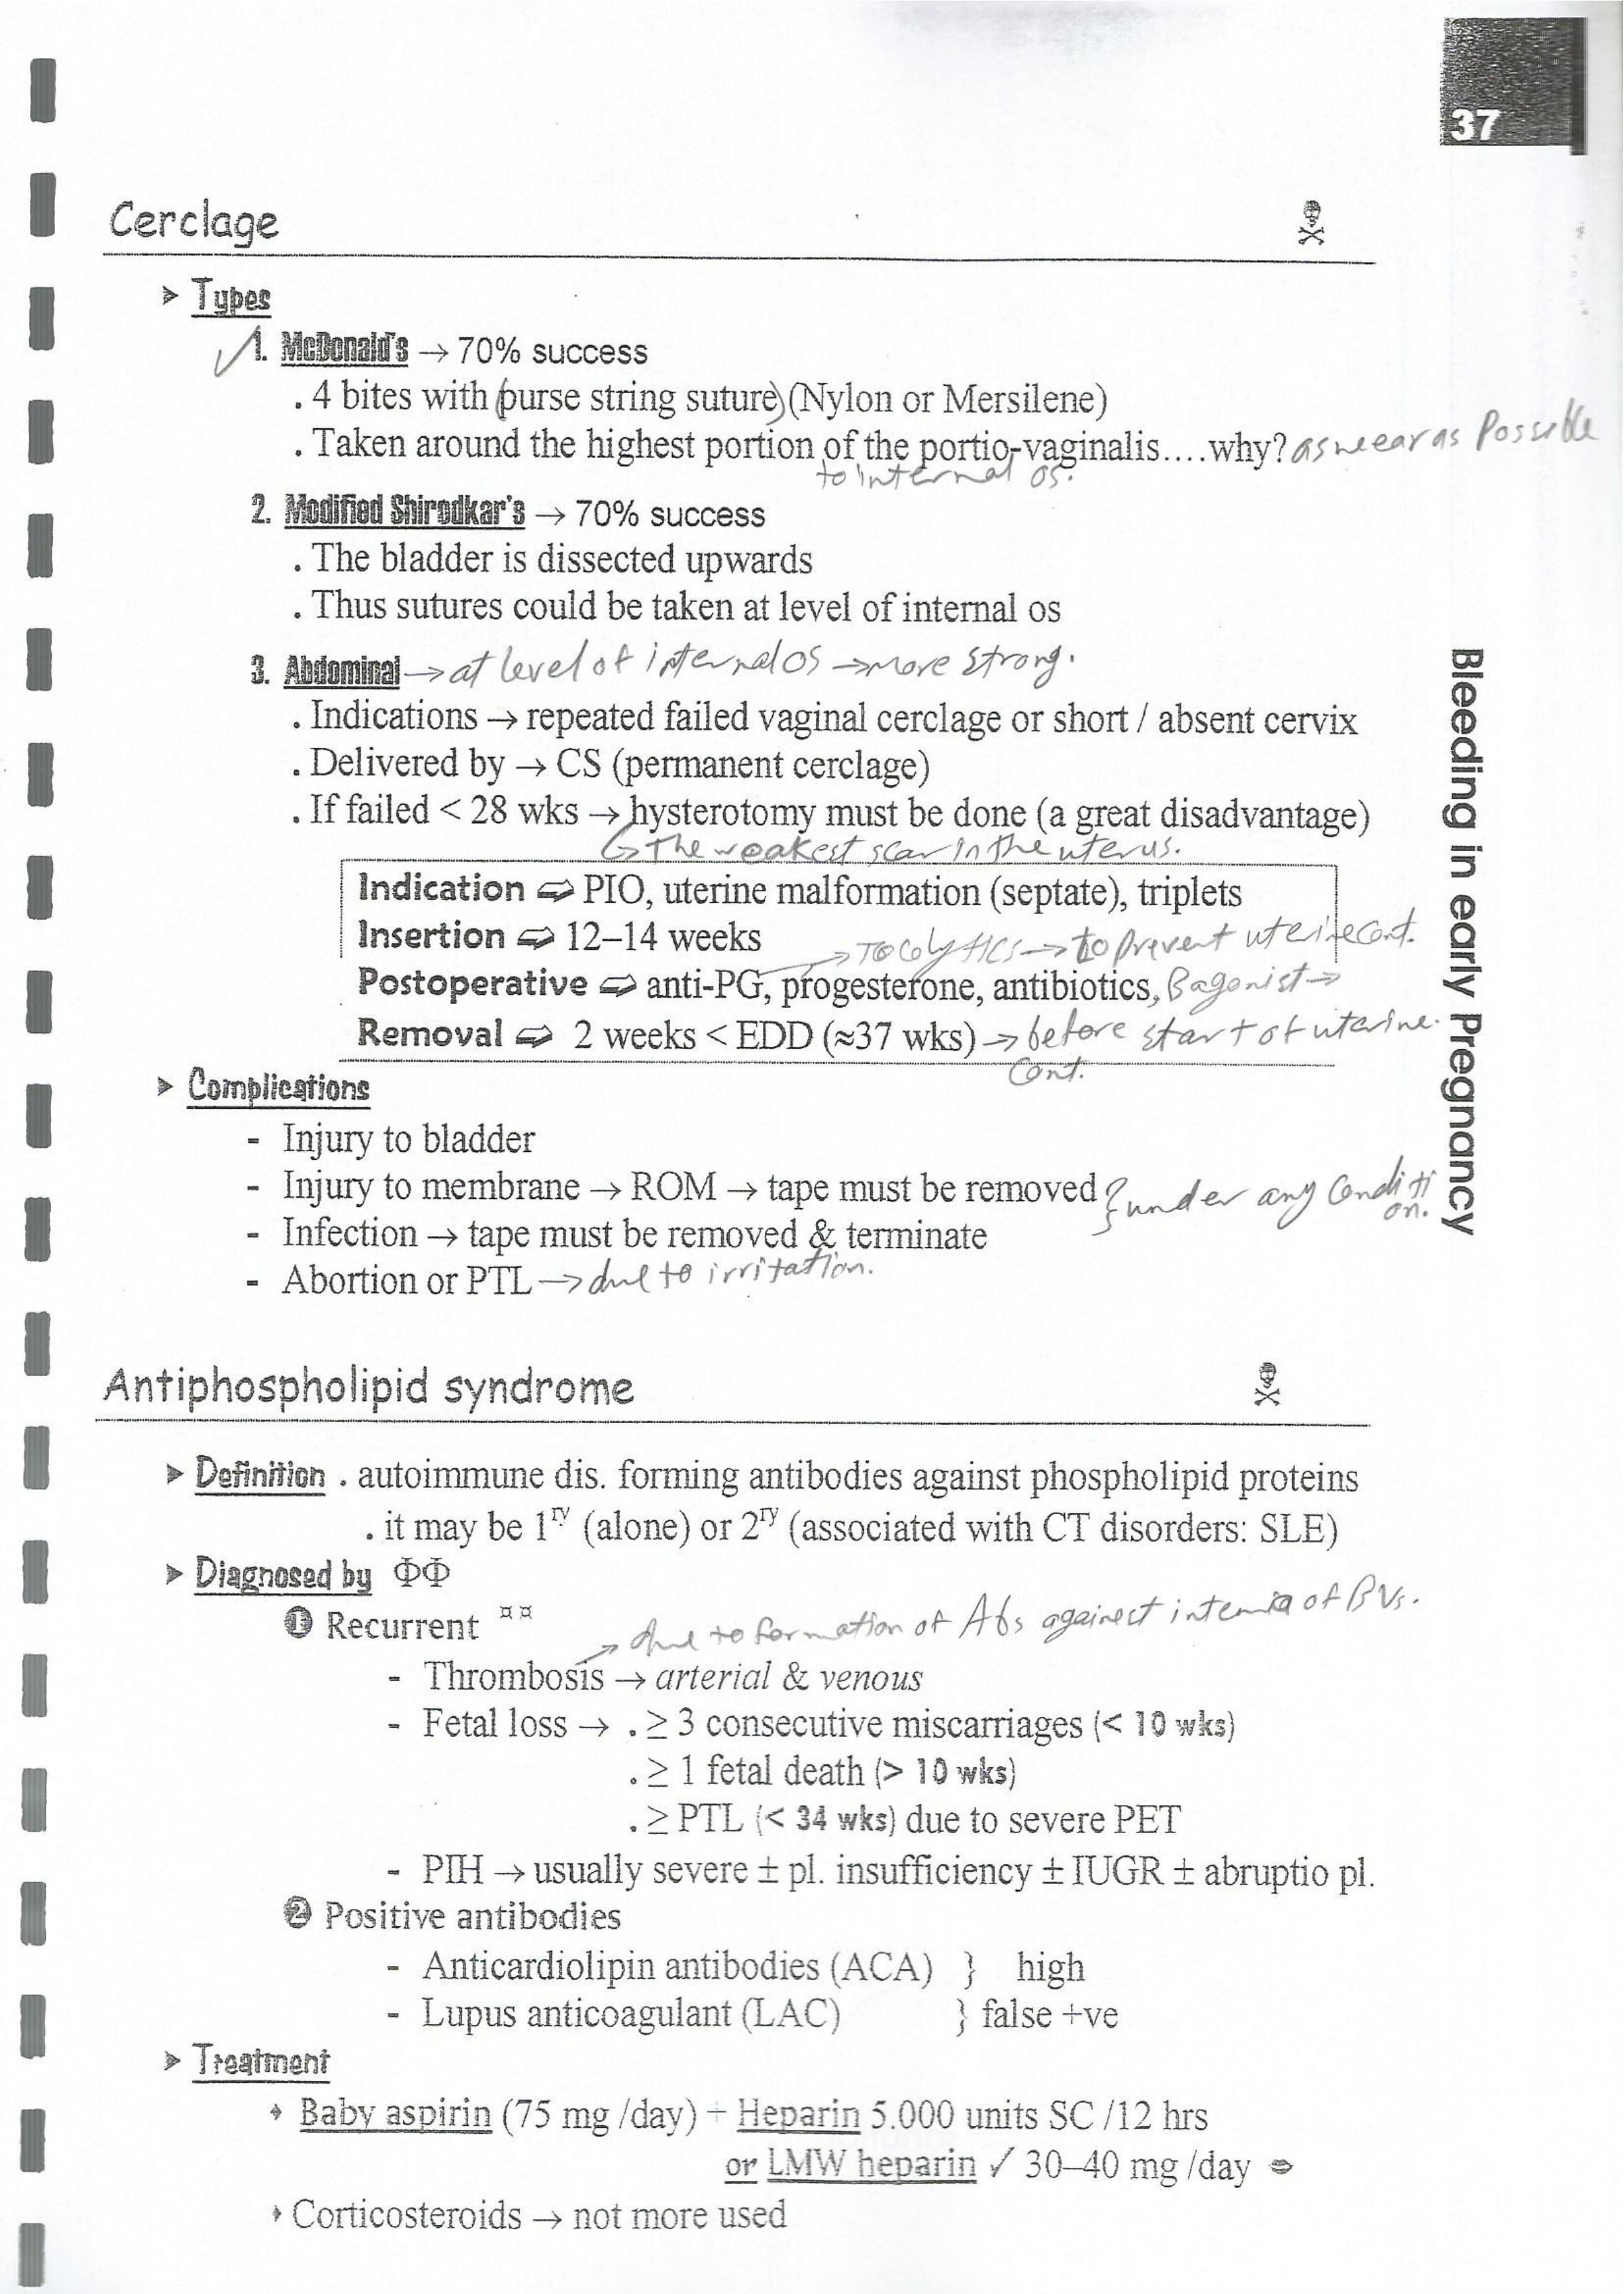 37
Cerclage
➤ Types
1. McDonald's → 70% success
. 4 bites with (purse string suture) (Nylon or Mersilene)
. Taken around the highest portion of the portio-vaginalis....why? as neear as Possible
to internal os.
2. Modified Shirodkar's → 70% success
. The bladder is dissected upwards
. Thus sutures could be taken at level of internal os
3. Abdominal → at level of internal os → more strong.
. Indications → repeated failed vaginal cerclage or short / absent cervix
. Delivered by → CS (permanent cerclage)
. If failed < 28 wks → hysterotomy must be done (a great disadvantage)
↳ The weakest scar in the uterus.
Indication ⇨ PIO, uterine malformation (septate), triplets
Insertion ⇨ 12–14 weeks
→ Tocolytics → to prevent uterine cont.
Postoperative ⇨ anti-PG, progesterone, antibiotics, B agonist →
Removal ⇨ 2 weeks < EDD (≈37 wks) → before start of uterine.
Cont.
➤ Complications
- Injury to bladder
- Injury to membrane → ROM → tape must be removed } under any Conditi
on.
- Infection → tape must be removed & terminate
- Abortion or PTL → due to irritation.
Bleeding in early Pregnancy
Antiphospholipid syndrome
➤ Definition . autoimmune dis. forming antibodies against phospholipid proteins
. it may be 1ry (alone) or 2ry (associated with CT disorders: SLE)
➤ Diagnosed by ΦΦ
❶ Recurrent ¤¤
→ due to formation of Abs against intema of BVs.
- Thrombosis → arterial & venous
- Fetal loss → . ≥ 3 consecutive miscarriages (< 10 wks)
. ≥ 1 fetal death (> 10 wks)
. ≥ PTL (< 34 wks) due to severe PET
- PIH → usually severe ± pl. insufficiency ± IUGR ± abruptio pl.
❷ Positive antibodies
- Anticardiolipin antibodies (ACA) } high
- Lupus anticoagulant (LAC) } false +ve
➤ Treatment
Baby aspirin (75 mg /day) + Heparin 5.000 units SC /12 hrs
or LMW heparin ✓ 30–40 mg /day
Corticosteroids → not more used